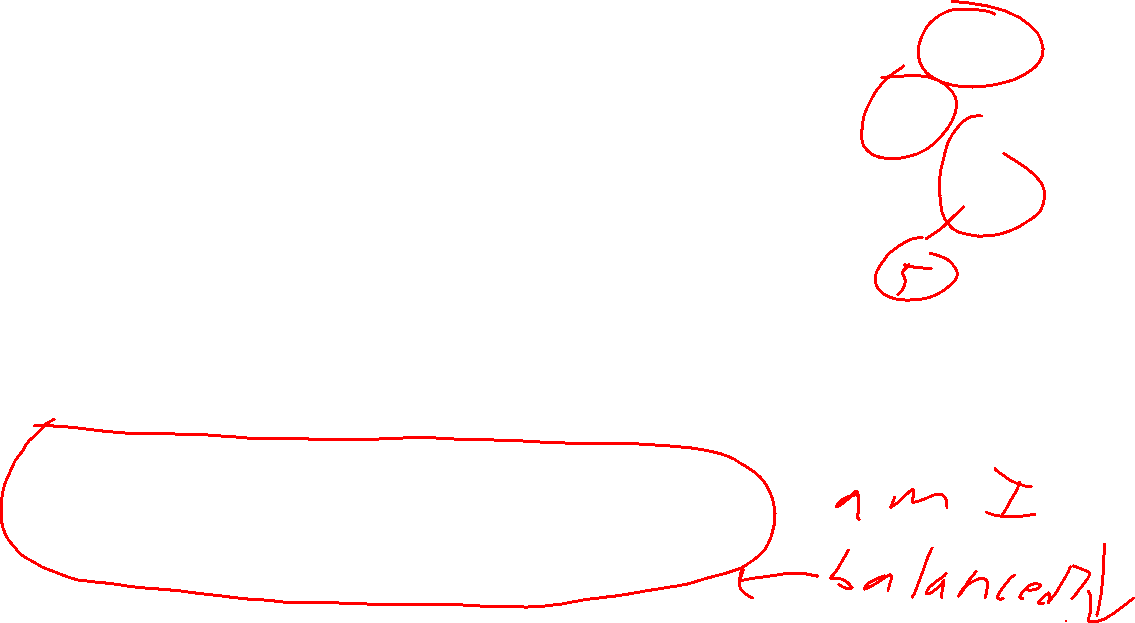 5
am I
balanced?